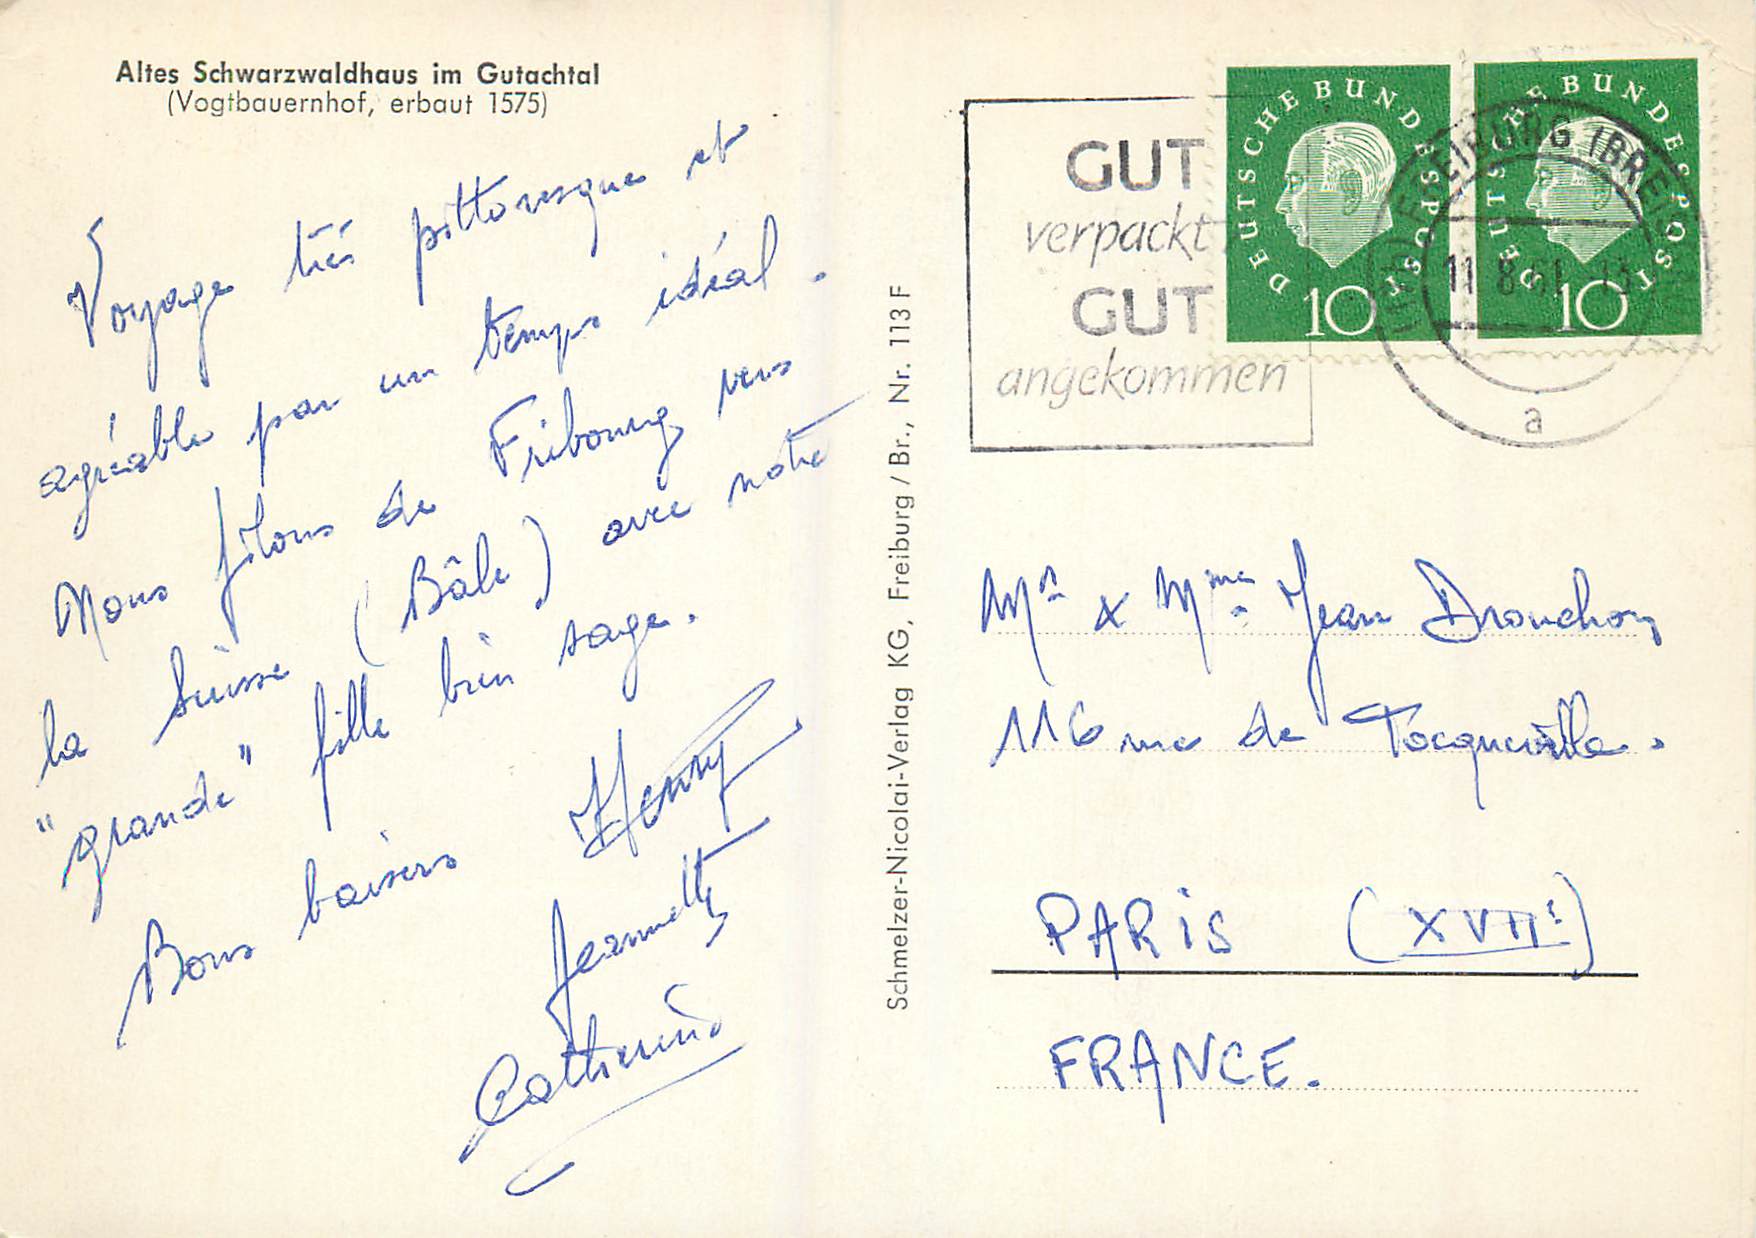 Altes Schwarzwaldhaus im Gutachtal
(Vogtbauernhof, erbaut 1575)
Voyage très pittoresque et
agréable par un temps idéal.
Nous filons de Fribourg vers
la Suisse (Bâle) avec notre
"grande" fille bien sage.
Bons baisers Henry
Jeannette
Catherine
Schmelzer-Nicolai-Verlag KG, Freiburg / Br., Nr. 113 F
GUT
verpackt
GUT
angekommen
DEUTSCHE BUNDESPOST
10
DEUTSCHE BUNDESPOST
10
FREIBURG (BREISGAU)
11.8.61.-13
a
Mr & Mme Jean Drouchon
116 rue de Tocqueville.
PARIS (XVIIe)
FRANCE.